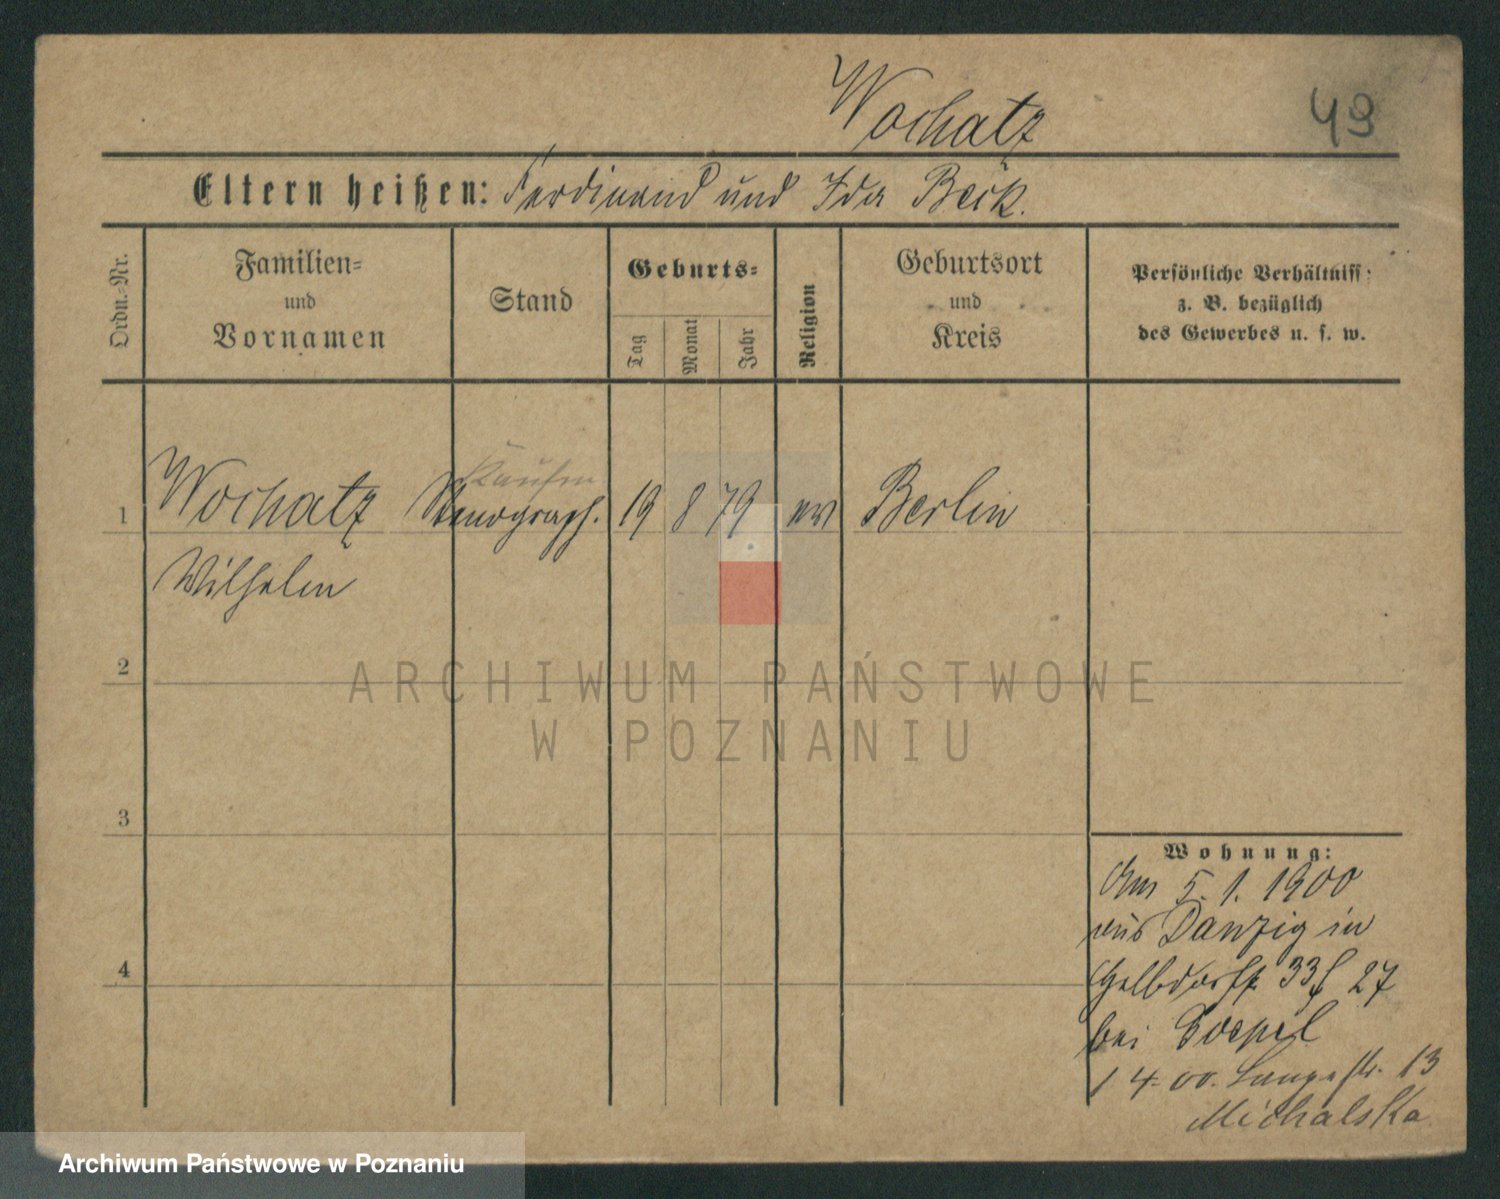 Wochatz
49
Eltern heißen: Ferdinand und Ida Beck.
Ordn.-Nr.
Familien-
und
Vornamen
Stand
Geburts-
Tag
Monat
Jahr
Religion
Geburtsort
und
Kreis
Persönliche Verhältniss
z. B. bezüglich
des Gewerbes u. s. w.
Kaufm
1 Wochatz Stenograph. 19 8 79 ev Berlin
Wilhelm
2
ARCHIWUM PAŃSTWOWE
W POZNANIU
3
4
Wohnung:
Am 5. 1. 1900
aus Danzig in
33 27
bei
1 4. 00. Langestr. 13
Michalska
Archiwum Państwowe w Poznaniu